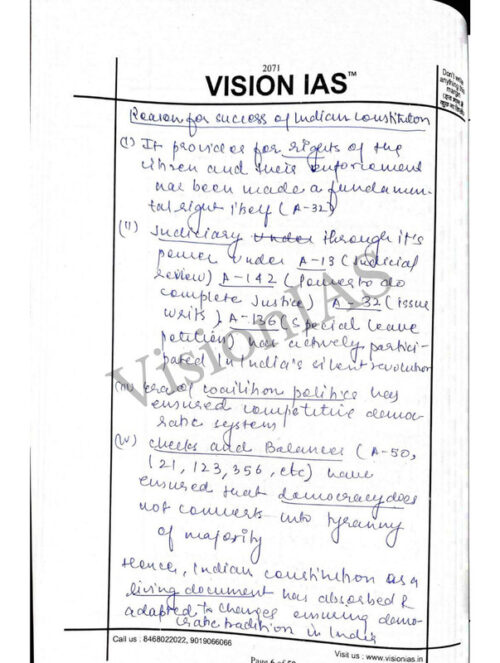 2071
VISION IAS™
Don't write
anything this
margin
Reason for success of Indian constitution
(i) It provides for rights of the
citizen and their enforcement
has been made a fundamen-
tal right itself (A-32)
(ii) Judiciary under through it's
power under A-13 (Judicial
review) A-142 (Powers to do
complete Justice) A-32 (issue
writs), A-136 (Special leave
petition) has actively partici-
pated in India's silent revolution
(iii) Era of coalition politics has
ensured competitive democ-
ratic system
(iv) Checks and Balances (A-50,
121, 123, 356, etc) have
ensured that democracy does
not converts into tyranny
of majority
Hence, Indian constitution as a
living document has absorbed &
adapted to changes ensuring demo-
cratic tradition in India
VisionIAS
Call us : 8468022022, 9019066066
Visit us : www.visionias.in
Page 6 of 50